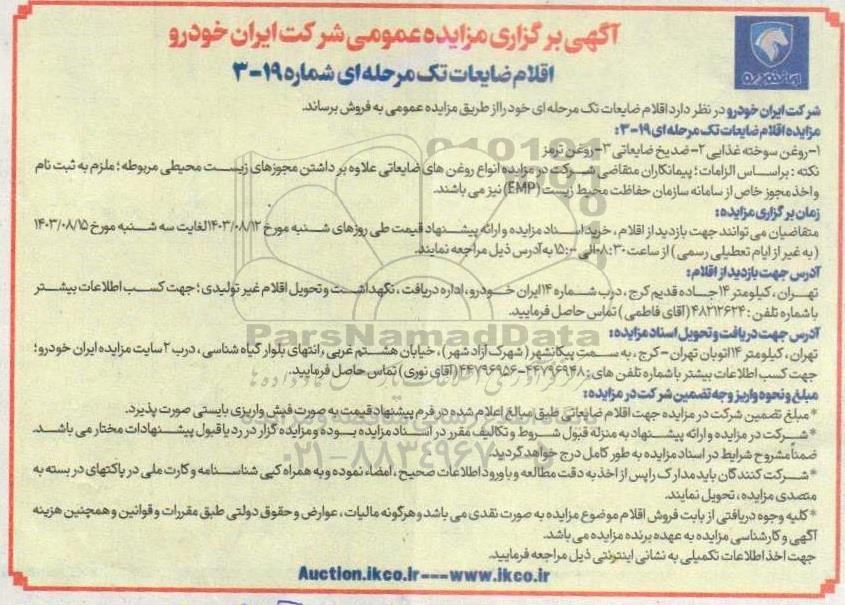 آگهی برگزاری مزایده عمومی شرکت ایران خودرو
اقلام ضایعات تک مرحله ای شماره ۱۹-۳
ایران خودرو
شرکت ایران خودرو در نظر دارد اقلام ضایعات تک مرحله ای خود را از طریق مزایده عمومی به فروش برساند.
مزایده اقلام ضایعات تک مرحله ای ۱۹-۳:
۱-روغن سوخته غذایی ۲-ضدیخ ضایعاتی ۳-روغن ترمز
نکته : براساس الزامات؛ پیمانکاران متقاضی شرکت در مزایده انواع روغن های ضایعاتی علاوه بر داشتن مجوزهای زیست محیطی مربوطه؛ ملزم به ثبت نام
و اخذ مجوز خاص از سامانه سازمان حفاظت محیط زیست (EMP) نیز می باشند.
زمان برگزاری مزایده:
متقاضیان می توانند جهت بازدید از اقلام ، خرید اسناد مزایده و ارائه پیشنهاد قیمت طی روزهای شنبه مورخ ۱۴۰۳/۰۸/۱۲ لغایت سه شنبه مورخ ۱۴۰۳/۰۸/۱۵
( به غیر از ایام تعطیلی رسمی ) از ساعت ۰۸:۳۰ الی ۱۵:۰۰ به آدرس ذیل مراجعه نمایند.
آدرس جهت بازدید از اقلام:
تهران ، کیلومتر ۱۴ جاده قدیم کرج ، درب شماره ۱۴ ایران خودرو، اداره دریافت ، نگهداشت و تحویل اقلام غیر تولیدی؛ جهت کسب اطلاعات بیشتر
با شماره تلفن : ۴۸۲۱۲۶۲۴ ( آقای فاطمی ) تماس حاصل فرمایید.
آدرس جهت دریافت و تحویل اسناد مزایده:
تهران ، کیلومتر ۱۴ اتوبان تهران - کرج ، به سمت پیکانشهر ( شهرک آزاد شهر ) ، خیابان هشتم غربی ، انتهای بلوار گیاه شناسی ، درب ۲ سایت مزایده ایران خودرو؛
جهت کسب اطلاعات بیشتر با شماره تلفن های: ۴۴۷۹۶۹۴۸-۴۴۷۹۶۹۵۶ (آقای نوری) تماس حاصل فرمایید.
مبلغ و نحوه واریز وجه تضمین شرکت در مزایده:
*مبلغ تضمین شرکت در مزایده جهت اقلام ضایعاتی طبق مبالغ اعلام شده در فرم پیشنهاد قیمت به صورت فیش واریزی بایستی صورت پذیرد.
*شرکت در مزایده و ارائه پیشنهاد به منزله قبول شروط و تکالیف مقرر در اسناد مزایده بوده و مزایده گزار در رد یا قبول پیشنهادات مختار می باشد.
ضمناً مشروح شرایط در اسناد مزایده به طور کامل درج خواهد گردید.
*شرکت کنندگان باید مدارک را پس از اخذ به دقت مطالعه و با ورود اطلاعات صحیح ، امضاء نموده و به همراه کپی شناسنامه و کارت ملی در پاکتهای در بسته به
متصدی مزایده ، تحویل نمایند.
*کلیه وجوه دریافتی از بابت فروش اقلام موضوع مزایده به صورت نقدی می باشد و هرگونه مالیات ، عوارض و حقوق دولتی طبق مقررات و قوانین و همچنین هزینه
آگهی و کارشناسی مزایده به عهده برنده مزایده می باشد.
جهت اخذ اطلاعات تکمیلی به نشانی اینترنتی ذیل مراجعه فرمایید.
Auction.ikco.ir---www.ikco.ir
ParsNamadData
۰۲۱-۸۸۳۴۹۶۷